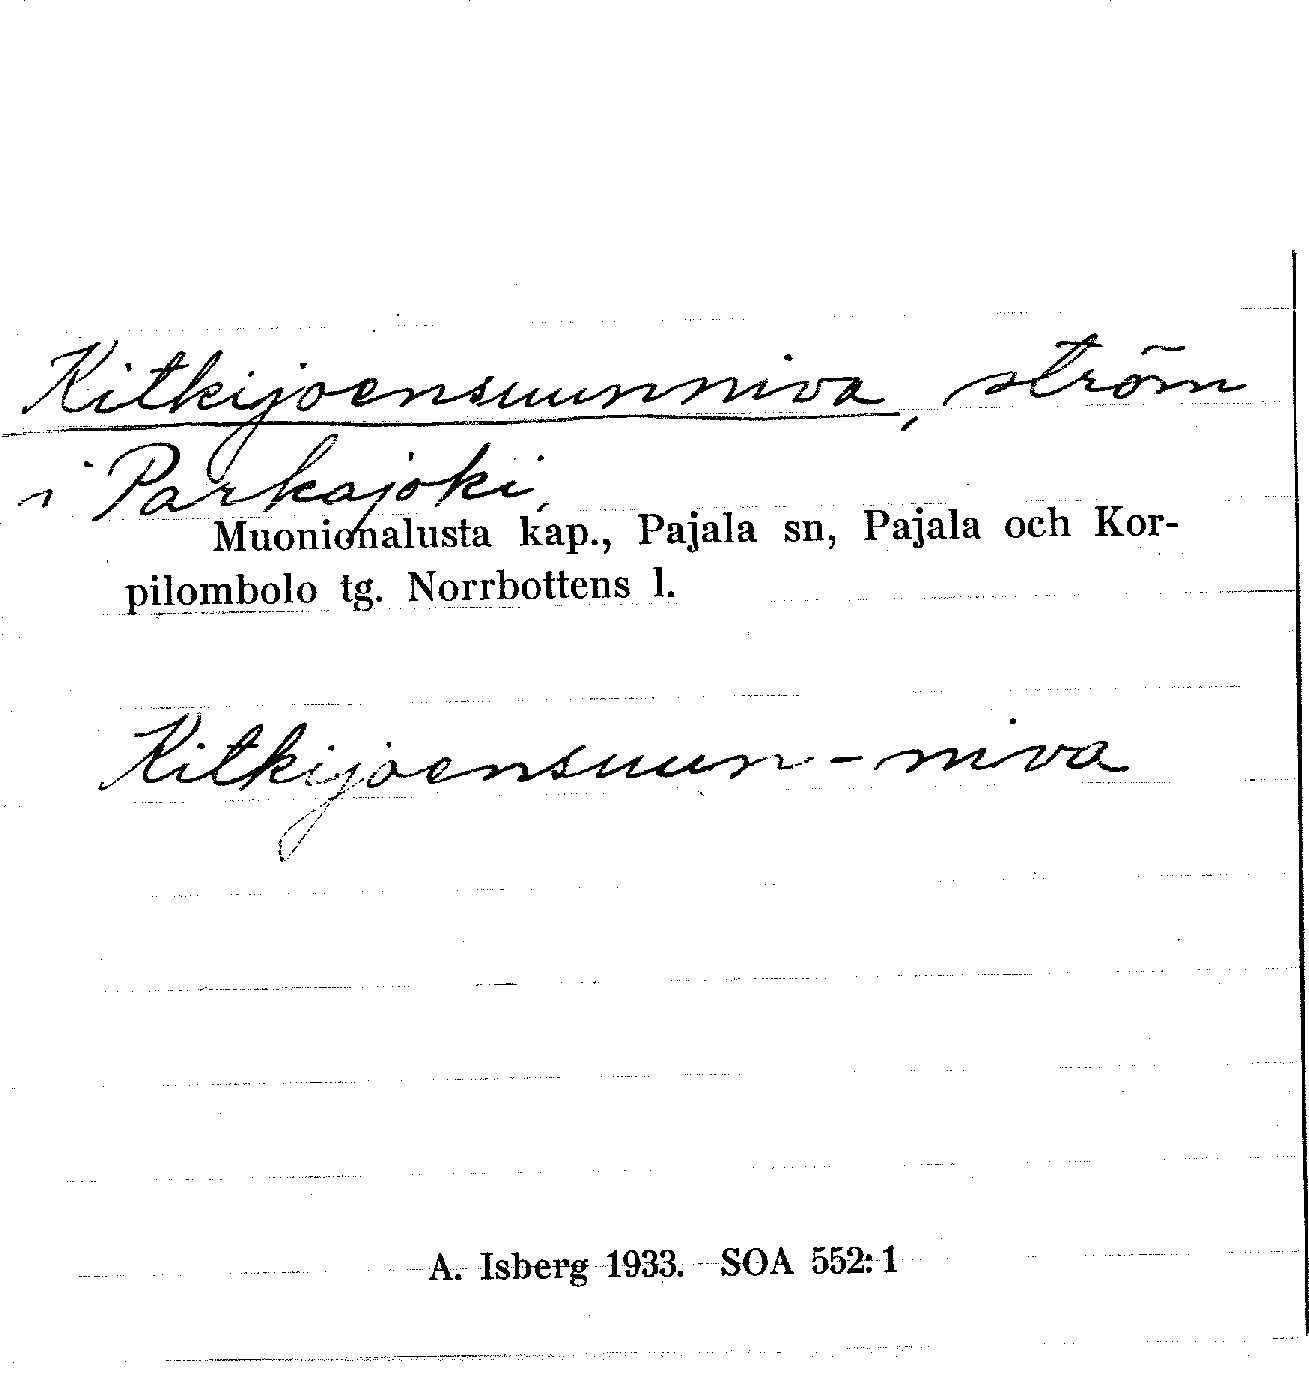 Kitkijoensuunniva, ström
i Parkajoki,
Muonionalusta kap., Pajala sn, Pajala och Kor-
pilombolo tg. Norrbottens l.
Kitkijoensuun-niva
A. Isberg 1933. SOA 552:1